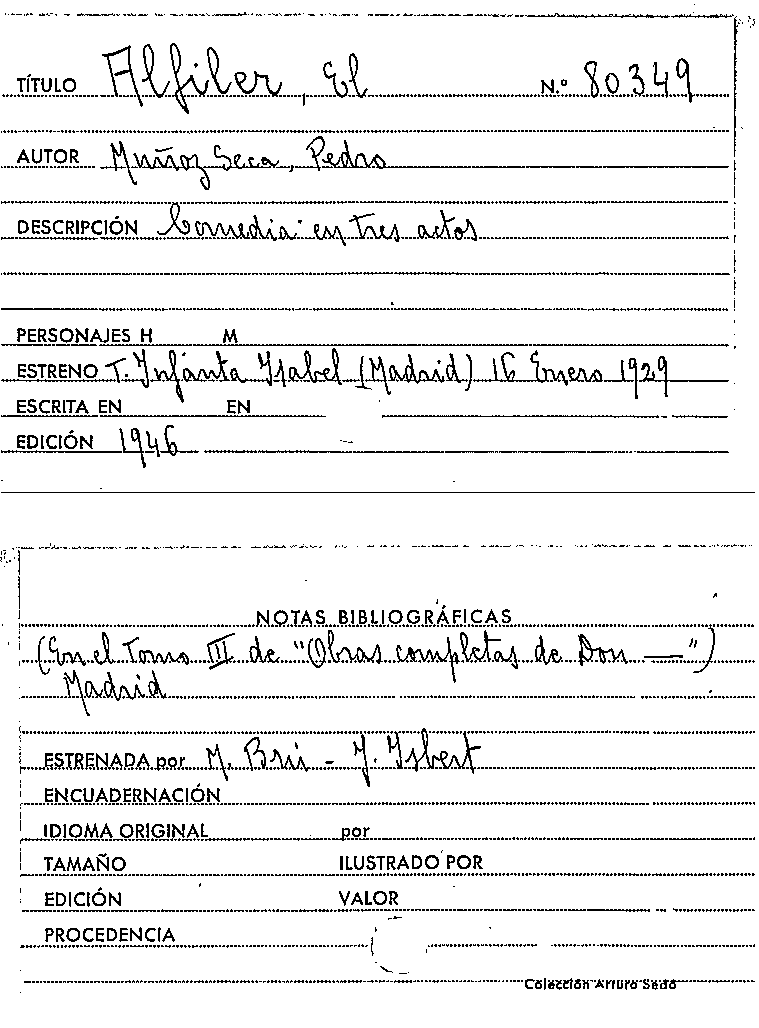 TÍTULO Alfiler, El N.º 80349
AUTOR Muñoz Seca, Pedro
DESCRIPCIÓN Comedia en tres actos
PERSONAJES H M
ESTRENO T. Infanta Ysabel (Madrid) 16 Enero 1929
ESCRITA EN EN
EDICIÓN 1946
NOTAS BIBLIOGRÁFICAS
(En el Tomo III de "Obras completas de Don —")
Madrid
ESTRENADA por M. Brú - J. Ysbert
ENCUADERNACIÓN
IDIOMA ORIGINAL por
TAMAÑO ILUSTRADO POR
EDICIÓN VALOR
PROCEDENCIA
Colección Arturo Sedó